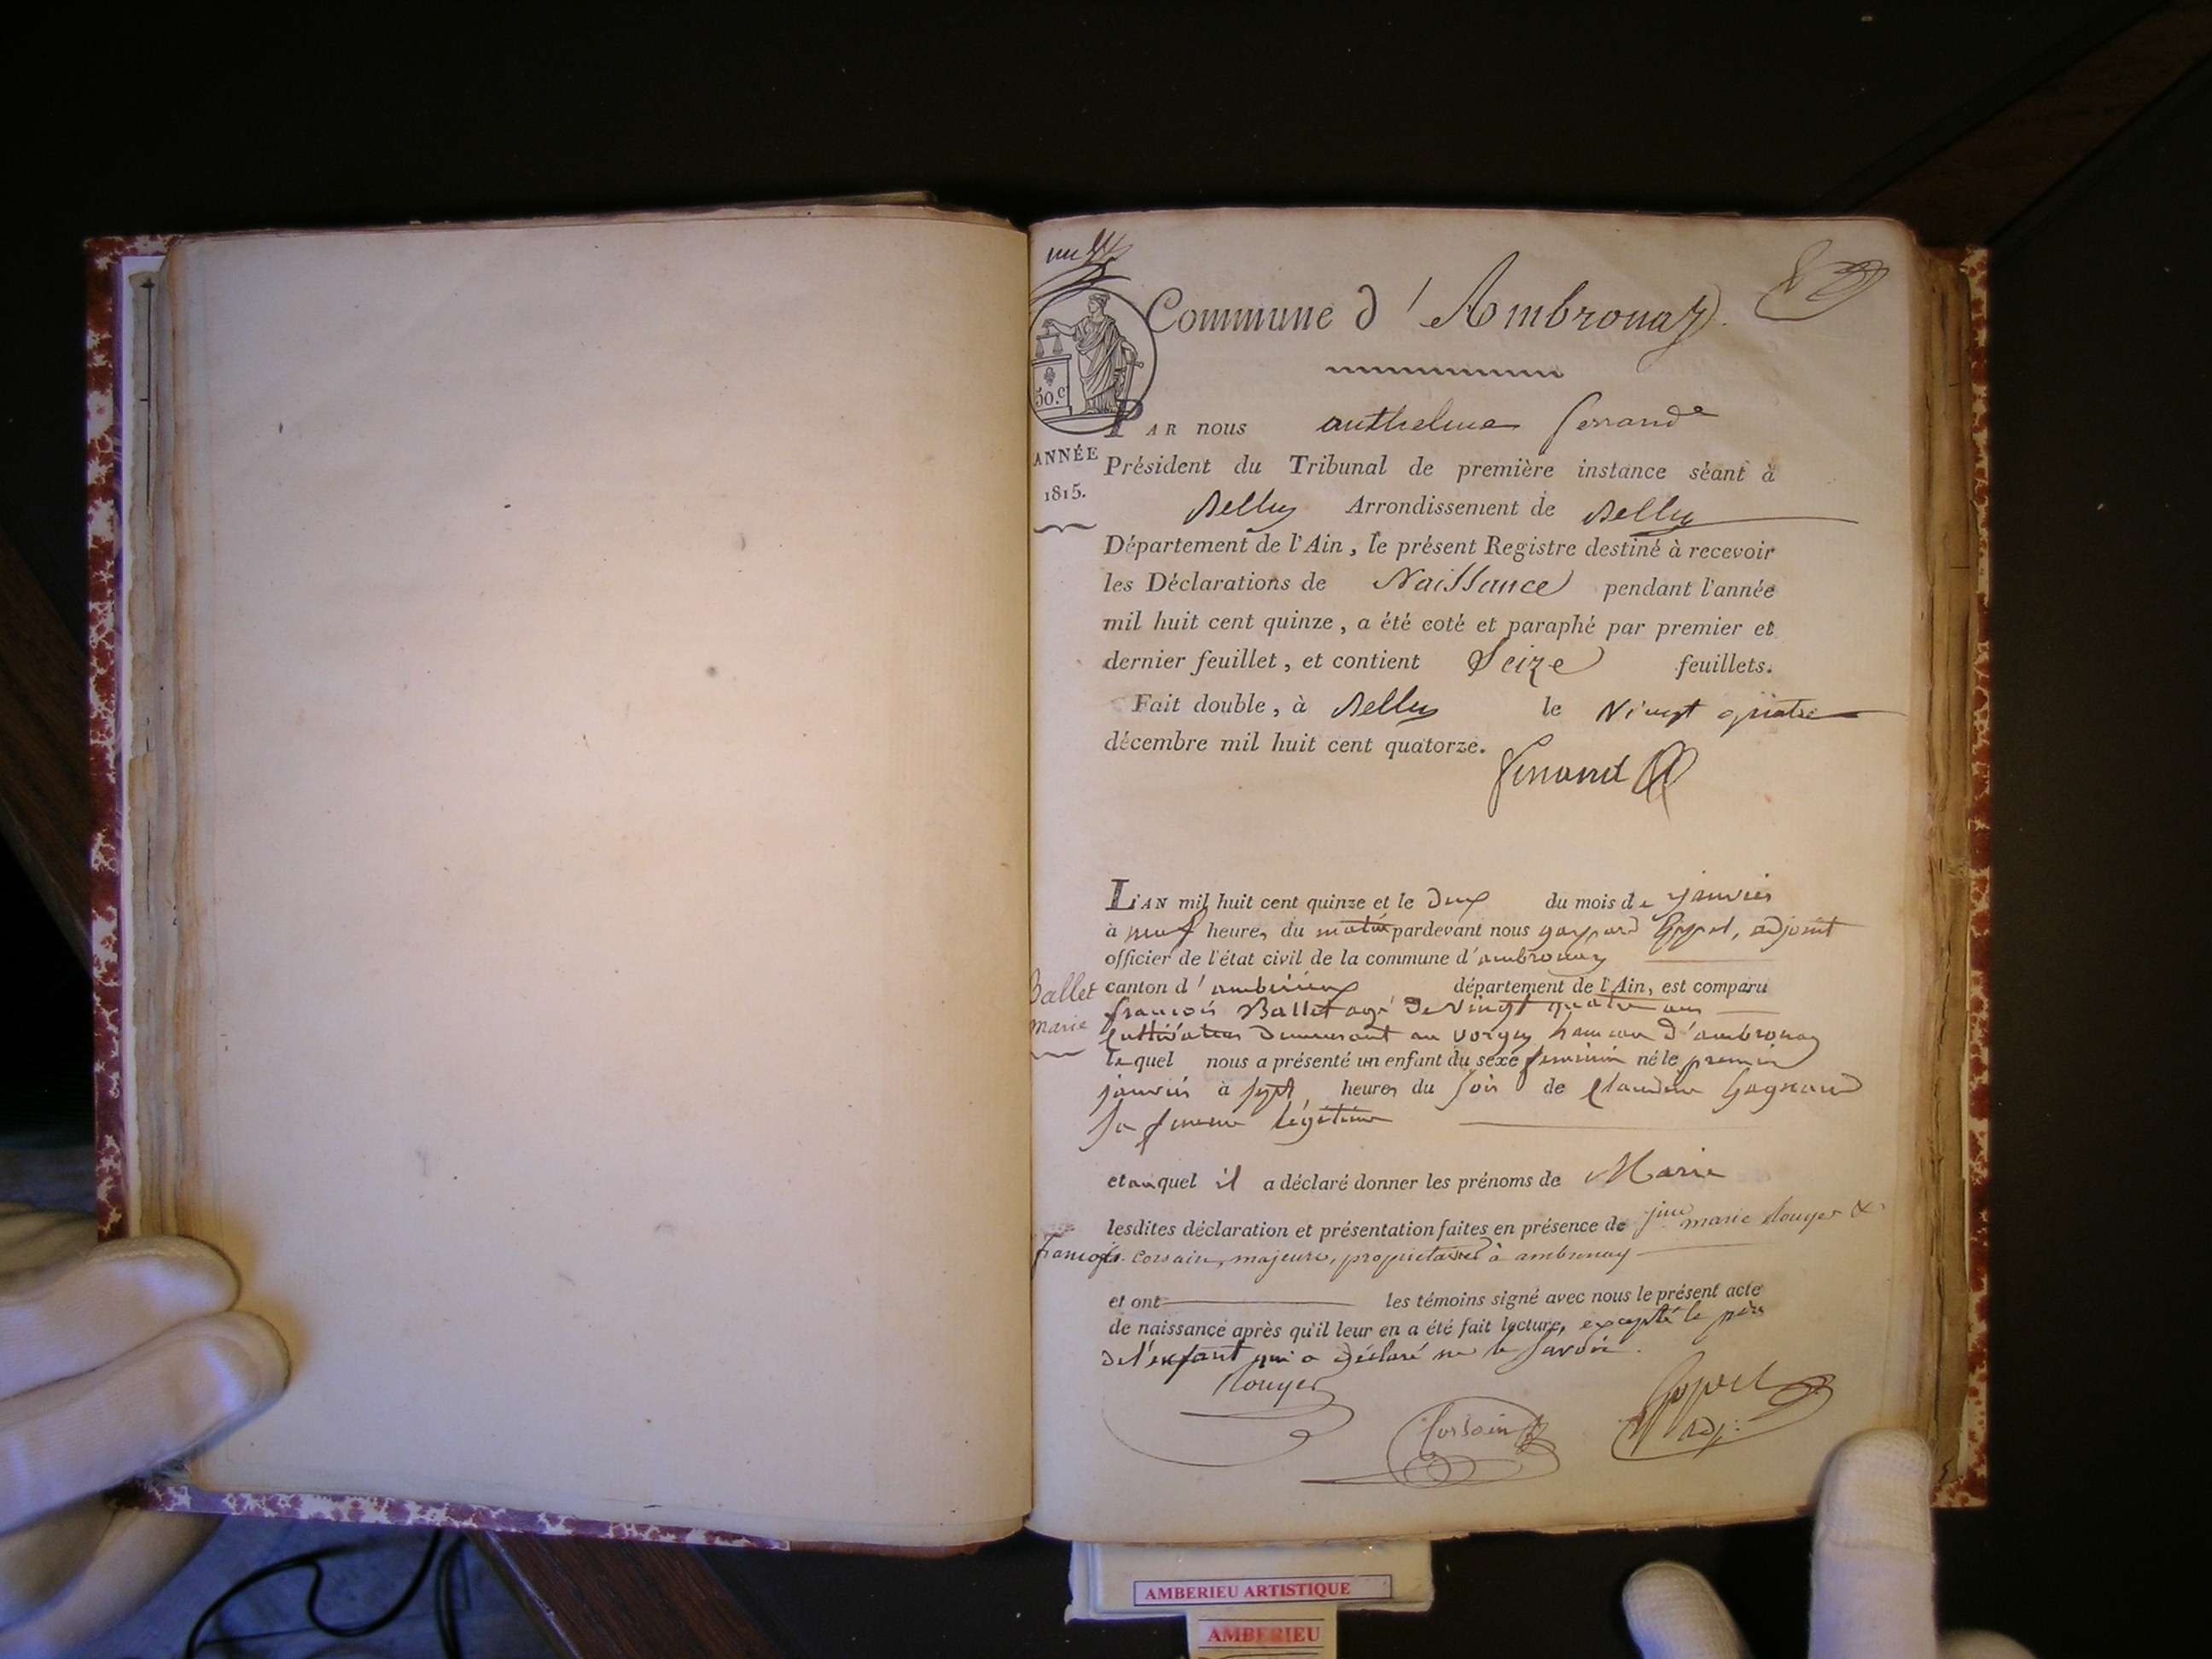 Commune d'Ambronay.
50.c
PAR nous anthelme ferrand
ANNÉE
1815.
Président du Tribunal de première instance séant à
Belley Arrondissement de Belley
Département de l'Ain, le présent Registre destiné à recevoir
les Déclarations de Naissance pendant l'année
mil huit cent quinze, a été coté et paraphé par premier et
dernier feuillet, et contient Seize feuillets.
Fait double, à Belley le vingt quatre
décembre mil huit cent quatorze.
ferrand
L'AN mil huit cent quinze et le deux du mois de janvier
à neuf heures du matin pardevant nous gaspard adjoint
officier de l'état civil de la commune d'ambronay
Ballet
marie
canton d'ambérieux département de l'Ain, est comparu
françois Ballet agé de vingt quatre ans
cultivateur demeurant au vorgey hameau d'ambronay
lequel nous a présenté un enfant du sexe feminin né le premier
janvier à sept heures du soir de claudine gagnaud
sa femme légitime
et auquel il a déclaré donner les prénoms de Marie
lesdites déclaration et présentation faites en présence de marie &
françois corsain, majeurs, propriétaires à ambronay
et ont les témoins signé avec nous le présent acte
de naissance après qu'il leur en a été fait lecture, excepté le père
de l'enfant qui a déclaré ne le savoir.
Corsain
adj.
AMBERIEU ARTISTIQUE
AMBERIEU